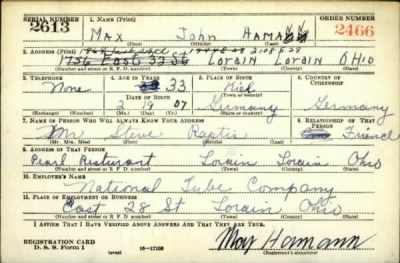 SERIAL NUMBER 1. NAME (Print) ORDER NUMBER
2613 MAX John HAMANN 2466
(First) (Middle) (Last)
2. ADDRESS (Print)
1756 East 32 St Lorain Lorain Ohio
(Number and street or R. F. D. number) (Town) (County) (State)
3. TELEPHONE 4. AGE IN YEARS 5. PLACE OF BIRTH 6. COUNTRY OF CITIZENSHIP
None 33 33 Kiel
DATE OF BIRTH
2 19 07 Germany Germany
(Exchange) (Number) (Mo.) (Day) (Yr.) (State or country)
7. NAME OF PERSON WHO WILL ALWAYS KNOW YOUR ADDRESS 8. RELATIONSHIP OF THAT PERSON
Mr Steve Raptis Friend
(Mr., Mrs., Miss) (First) (Middle) (Last)
9. ADDRESS OF THAT PERSON
Pearl Resturant Lorain Lorain Ohio
(Number and street or R. F. D. number) (Town) (County) (State)
10. EMPLOYER'S NAME
National Tube Company
11. PLACE OF EMPLOYMENT OR BUSINESS
East 28 St Lorain Ohio
(Number and street or R. F. D. number) (Town) (County) (State)
I AFFIRM THAT I HAVE VERIFIED ABOVE ANSWERS AND THAT THEY ARE TRUE.
REGISTRATION CARD
D. S. S. Form 1 (over) 16—17105 Max Hamann
(Registrant's signature)